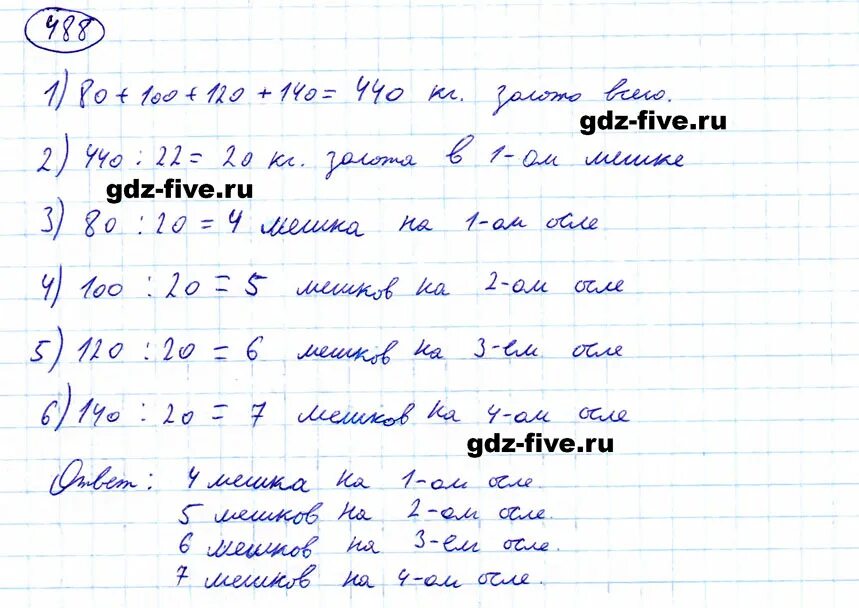 488
1) 80 + 100 + 120 + 140 = 440 кг. золота всего.
gdz-five.ru
2) 440 : 22 = 20 кг. золота в 1-ом мешке
gdz-five.ru
3) 80 : 20 = 4 мешка на 1-ом осле
4) 100 : 20 = 5 мешков на 2-ом осле
5) 120 : 20 = 6 мешков на 3-ем осле
6) 140 : 20 = 7 мешков на 4-ом осле
gdz-five.ru
Ответ: 4 мешка на 1-ом осле.
5 мешков на 2-ом осле.
6 мешков на 3-ем осле.
7 мешков на 4-ом осле.